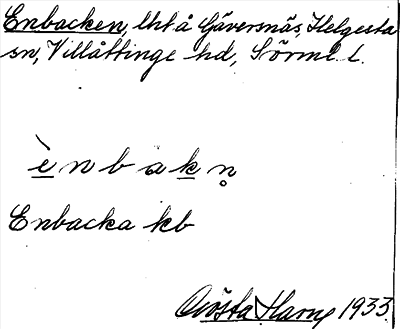 Enbacken, lht å Gäversnäs, Helgesta
sn, Villåttinge hd, Sörml. l.
ènbakn̥
Enbacka kb
Gösta Harg 1933.